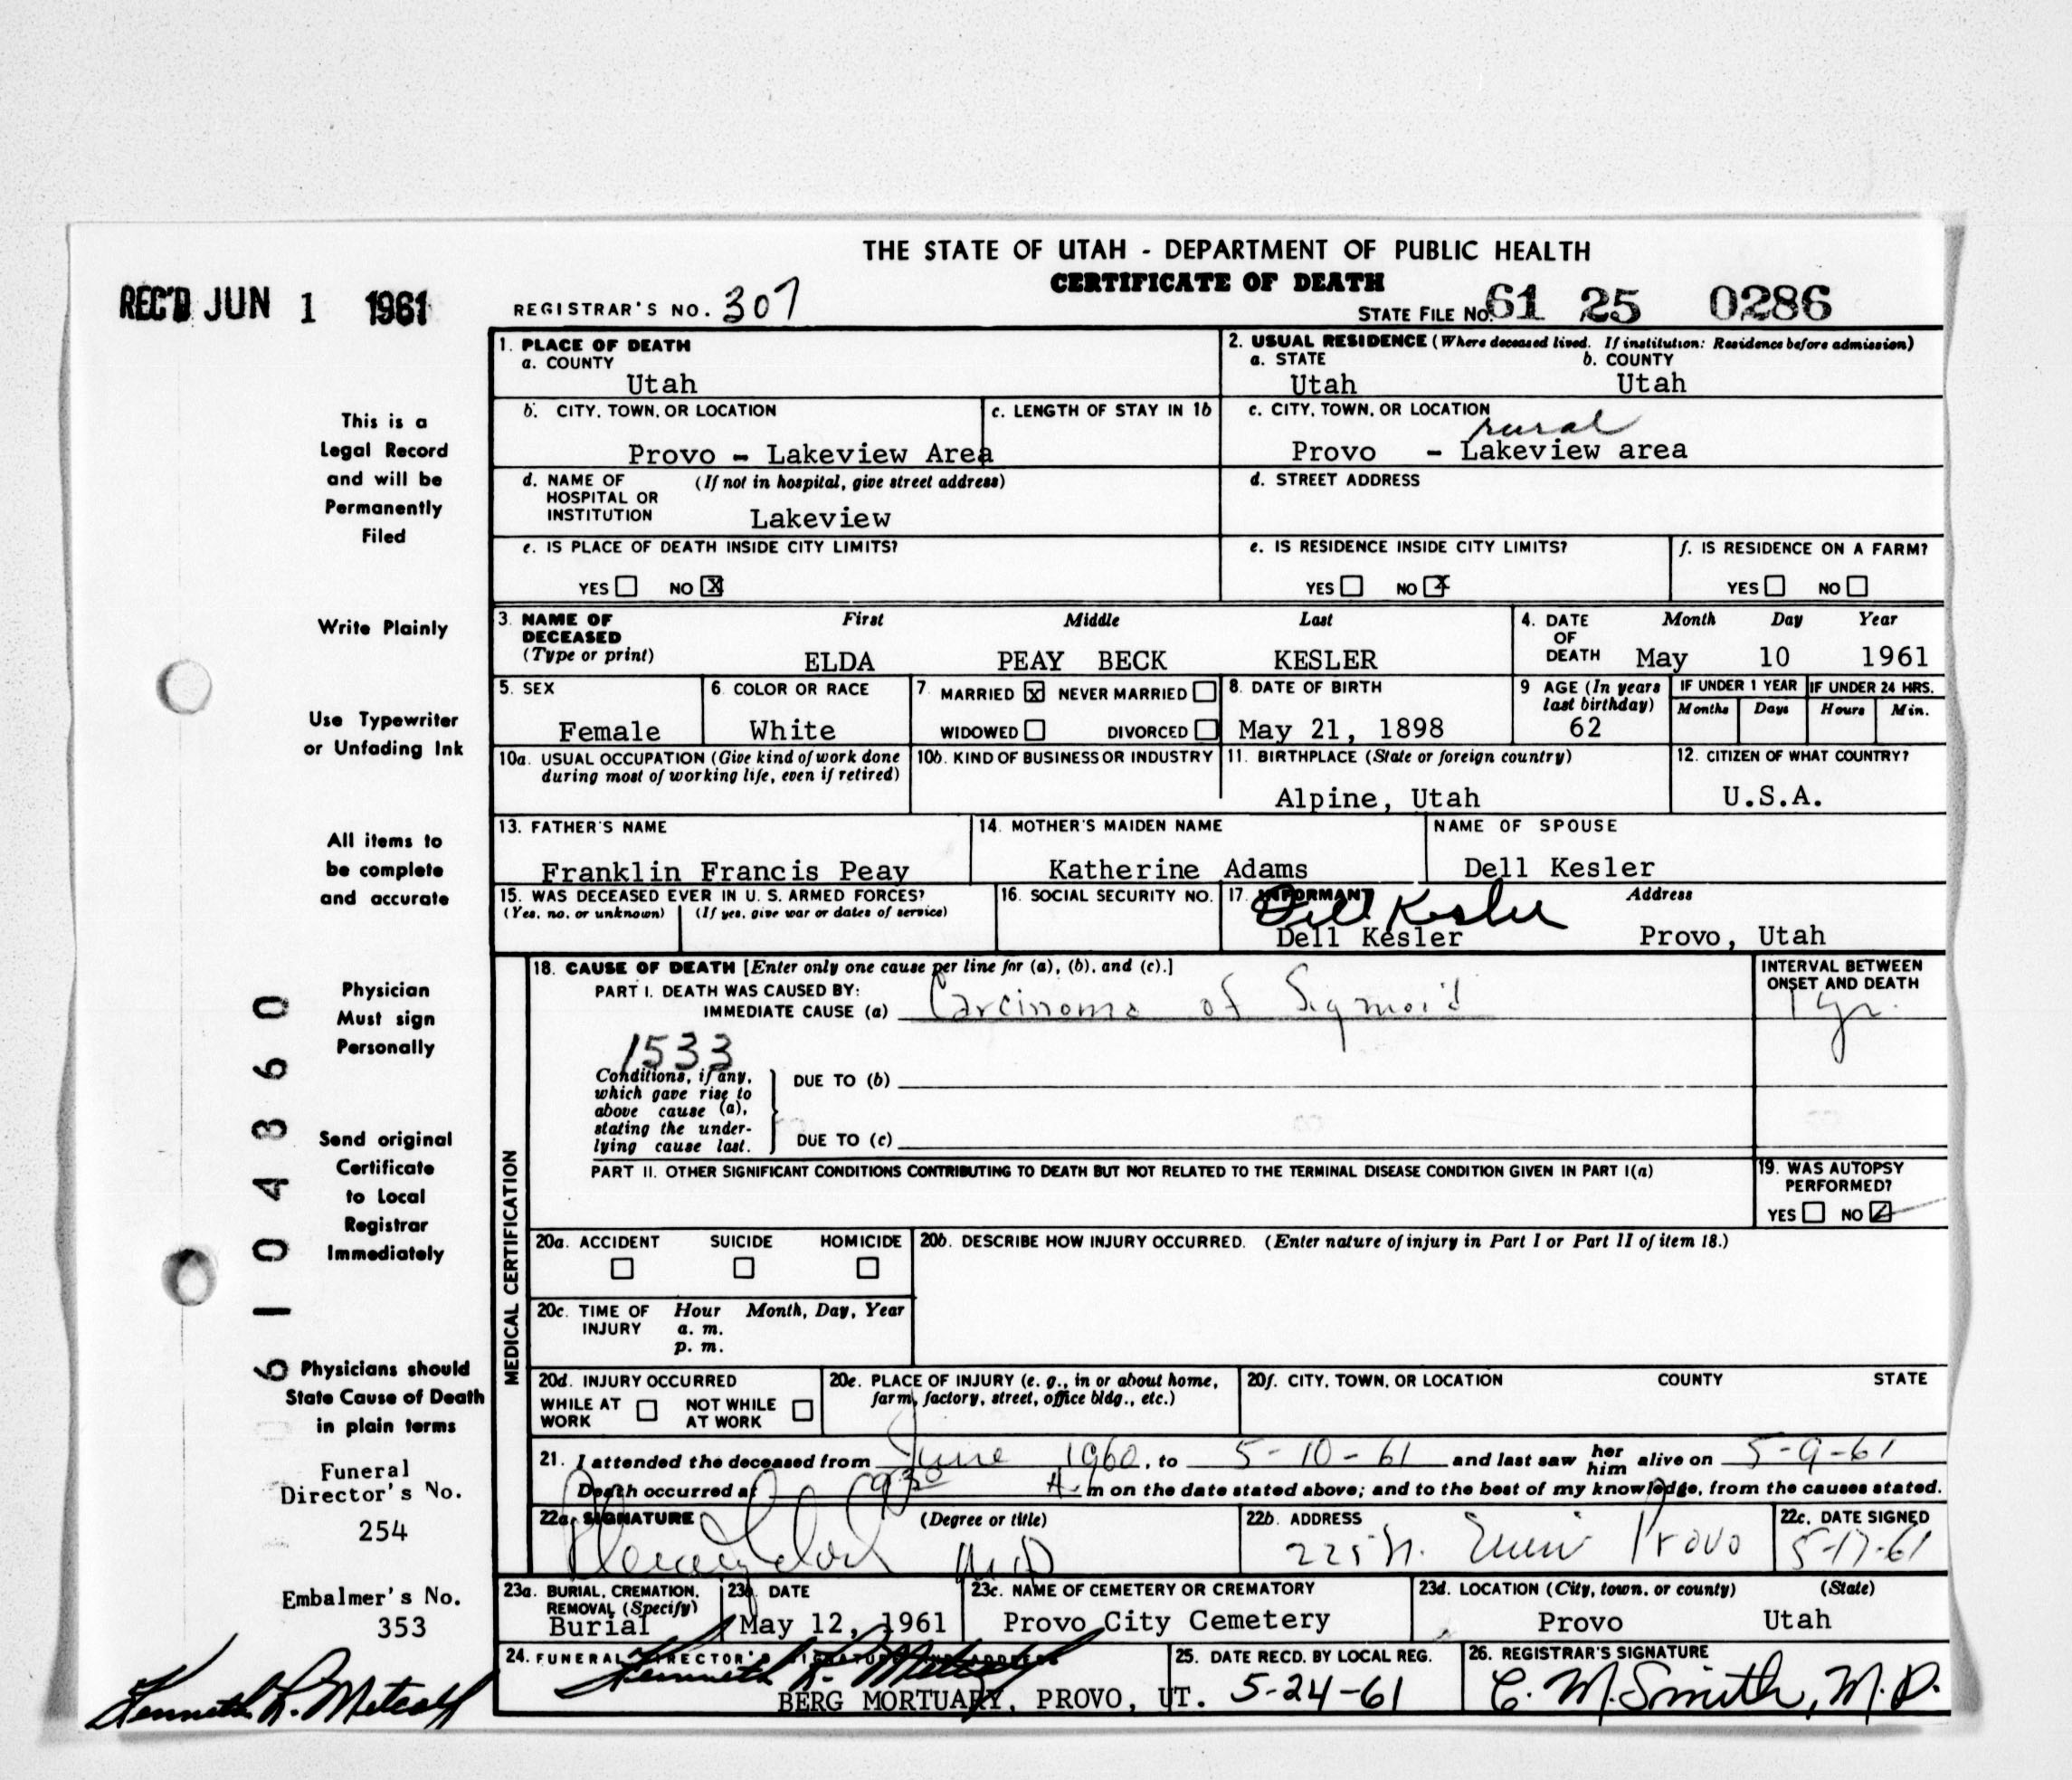 THE STATE OF UTAH - DEPARTMENT OF PUBLIC HEALTH
CERTIFICATE OF DEATH
REC'D JUN 1 1961
REGISTRAR'S NO. 307
STATE FILE NO. 61 25 0286
This is a
Legal Record
and will be
Permanently
Filed
Write Plainly
Use Typewriter
or Unfading Ink
All items to
be complete
and accurate
Physician
Must sign
Personally
Send original
Certificate
to Local
Registrar
Immediately
Physicians should
State Cause of Death
in plain terms
Funeral
Director's No.
254
Embalmer's No.
353
Kenneth R. Metcalf
6104860
1. PLACE OF DEATH
a. COUNTY
Utah
2. USUAL RESIDENCE (Where deceased lived. If institution: Residence before admission)
a. STATE b. COUNTY
Utah Utah
b. CITY, TOWN, OR LOCATION
Provo - Lakeview Area
c. LENGTH OF STAY IN 1b
c. CITY, TOWN, OR LOCATION
rural
Provo - Lakeview area
d. NAME OF (If not in hospital, give street address)
HOSPITAL OR
INSTITUTION
Lakeview
d. STREET ADDRESS
e. IS PLACE OF DEATH INSIDE CITY LIMITS?
YES NO X
e. IS RESIDENCE INSIDE CITY LIMITS?
YES NO X
f. IS RESIDENCE ON A FARM?
YES NO
3. NAME OF First Middle Last
DECEASED
(Type or print) ELDA PEAY BECK KESLER
4. DATE Month Day Year
OF
DEATH May 10 1961
5. SEX
Female
6. COLOR OR RACE
White
7. MARRIED X NEVER MARRIED
WIDOWED DIVORCED
8. DATE OF BIRTH
May 21, 1898
9 AGE (In years
last birthday)
62
IF UNDER 1 YEAR IF UNDER 24 HRS.
Months Days Hours Min.
10a. USUAL OCCUPATION (Give kind of work done
during most of working life, even if retired)
10b. KIND OF BUSINESS OR INDUSTRY
11. BIRTHPLACE (State or foreign country)
Alpine, Utah
12. CITIZEN OF WHAT COUNTRY?
U.S.A.
13. FATHER'S NAME
Franklin Francis Peay
14. MOTHER'S MAIDEN NAME
Katherine Adams
NAME OF SPOUSE
Dell Kesler
15. WAS DECEASED EVER IN U. S. ARMED FORCES?
(Yes, no, or unknown) (If yes, give war or dates of service)
16. SOCIAL SECURITY NO.
17. INFORMANT Address
Dell Kesler
Dell Kesler Provo, Utah
MEDICAL CERTIFICATION
18. CAUSE OF DEATH [Enter only one cause per line for (a), (b), and (c).]
PART I. DEATH WAS CAUSED BY:
IMMEDIATE CAUSE (a) Carcinoma of Sigmoid
INTERVAL BETWEEN
ONSET AND DEATH
1 yr.
1533
Conditions, if any,
which gave rise to
above cause (a),
stating the under-
lying cause last.
DUE TO (b)
DUE TO (c)
PART II. OTHER SIGNIFICANT CONDITIONS CONTRIBUTING TO DEATH BUT NOT RELATED TO THE TERMINAL DISEASE CONDITION GIVEN IN PART I(a)
19. WAS AUTOPSY
PERFORMED?
YES NO
20a. ACCIDENT SUICIDE HOMICIDE
20b. DESCRIBE HOW INJURY OCCURRED. (Enter nature of injury in Part I or Part II of item 18.)
20c. TIME OF Hour Month, Day, Year
INJURY a. m.
p. m.
20d. INJURY OCCURRED
WHILE AT NOT WHILE
WORK AT WORK
20e. PLACE OF INJURY (e. g., in or about home,
farm, factory, street, office bldg., etc.)
20f. CITY, TOWN, OR LOCATION COUNTY STATE
21. I attended the deceased from June 1960, to 5-10-61 and last saw her him alive on 5-9-61
Death occurred at 930 A. m on the date stated above; and to the best of my knowledge, from the causes stated.
22a. SIGNATURE (Degree or title)
M.D
22b. ADDRESS
Provo
22c. DATE SIGNED
5-17-61
23a. BURIAL, CREMATION,
REMOVAL (Specify)
Burial
23b. DATE
May 12, 1961
23c. NAME OF CEMETERY OR CREMATORY
Provo City Cemetery
23d. LOCATION (City, town, or county) (State)
Provo Utah
24. FUNERAL DIRECTOR'S SIGNATURE AND ADDRESS
Kenneth R. Metcalf
BERG MORTUARY, PROVO, UT.
25. DATE RECD. BY LOCAL REG.
5-24-61
26. REGISTRAR'S SIGNATURE
C. M. Smith, M.D.